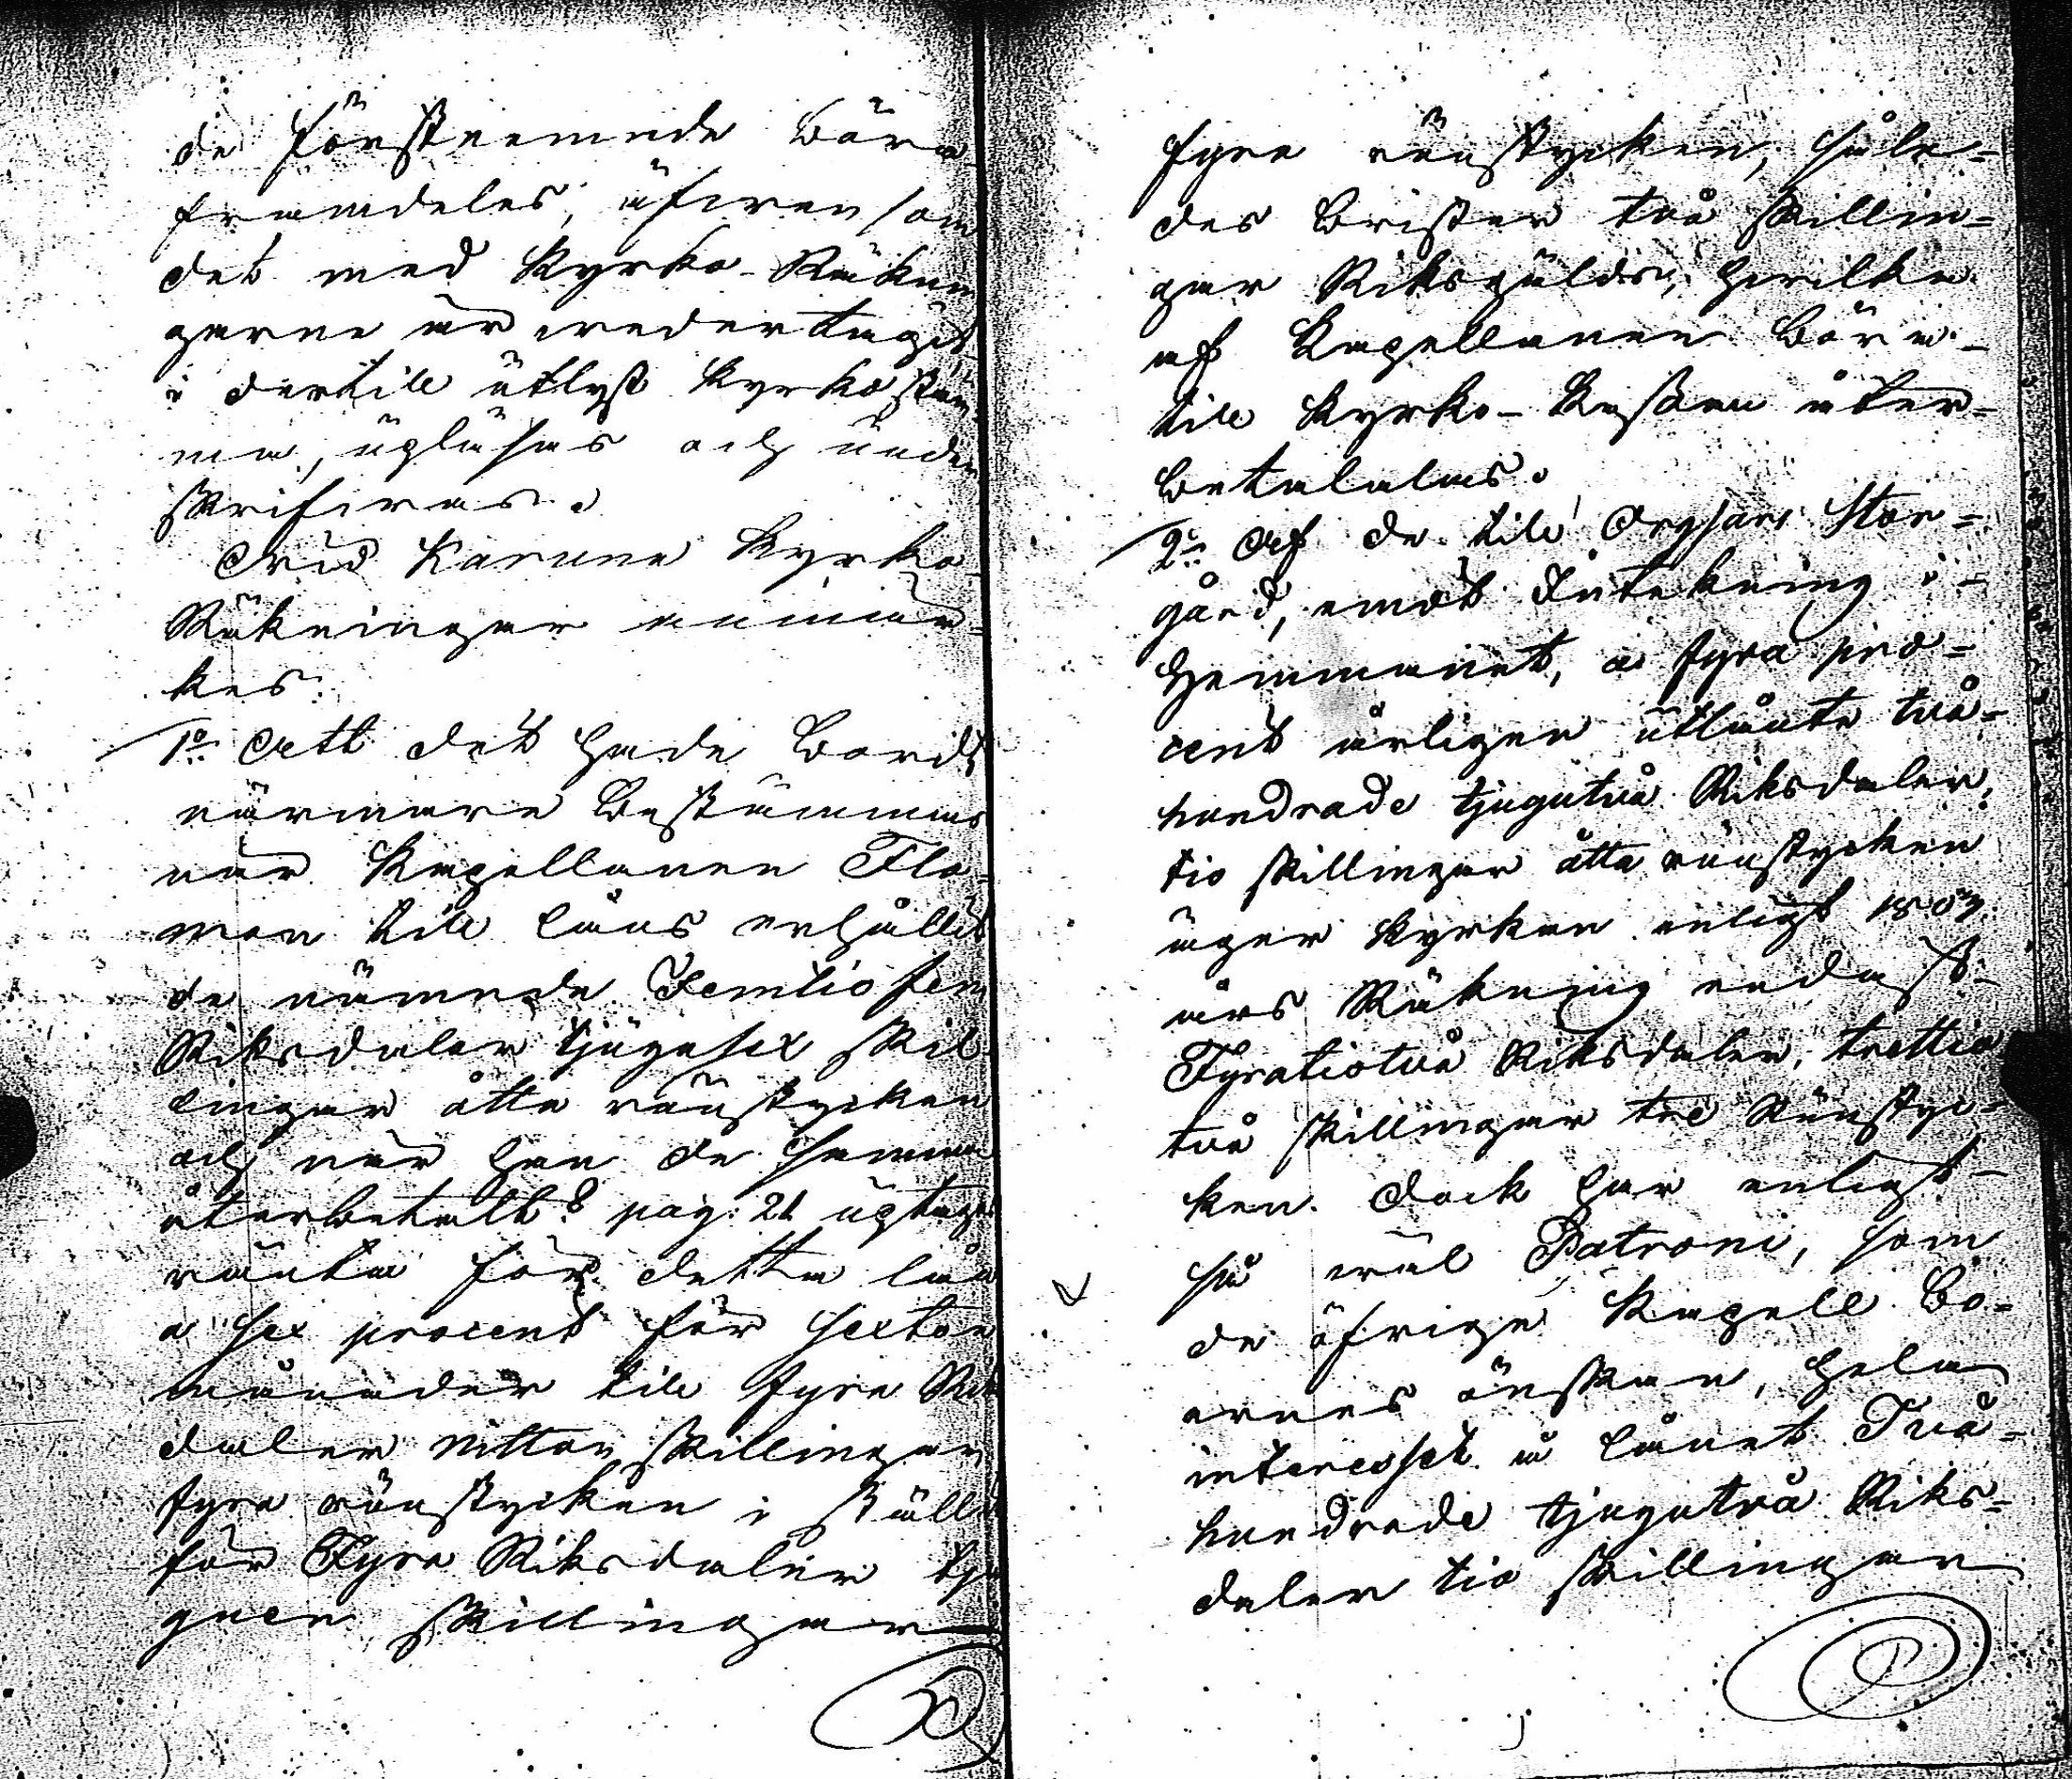 de förstnemnde böra
framdeles, äfwen som
det med Kyrko-Räknin
garne är wedertagit
i dertill utlyst Kyrkostäm-
ma, upläsas och under
skrifwas.
Wid Karuna Kyrko
Räkningar anmär-
kes:
1o Att det hade bordt
närmare bestämmas
när Kapellanen Flo-
man till låns erhållit
de nämnde Femtiofem
Riksdaler tjugusex skil
lingar åtta runstycken
och när han de samma
återbetalt? pag: 21 uptages
ränta för detta lån
a sex procent för sexton
månader till fyra Riks
daler nitton skillingar
fyra runstycken i ställe
för Fyra Riksdaler tju
guen skillingar
fyra runstycken, såle-
des brister två skillin-
gar Riksgälds, hwilka
af Kapellanen böra
till Kyrko-Kassan åter-
betalalas.
2o Af de till Stor-
gård, emot Inteckning i
Hemmanet, a fyra pro-
cent årligen utlånte två
hundrade tjugutvå Riksdaler,
tio skillingar åtta runstycken
äger Kyrkan enligt 1809
års Räkning endast
Fyratiotvå Riksdaler, trettio
två skillingar tre Runstyc-
ken. Dock har enligt
så wäl Patroni, som
de öfrige Kapell bo-
ernes önskan, hela
interesset å lånet Två
hundrade tjugutvå Riks-
daler tio skillingar